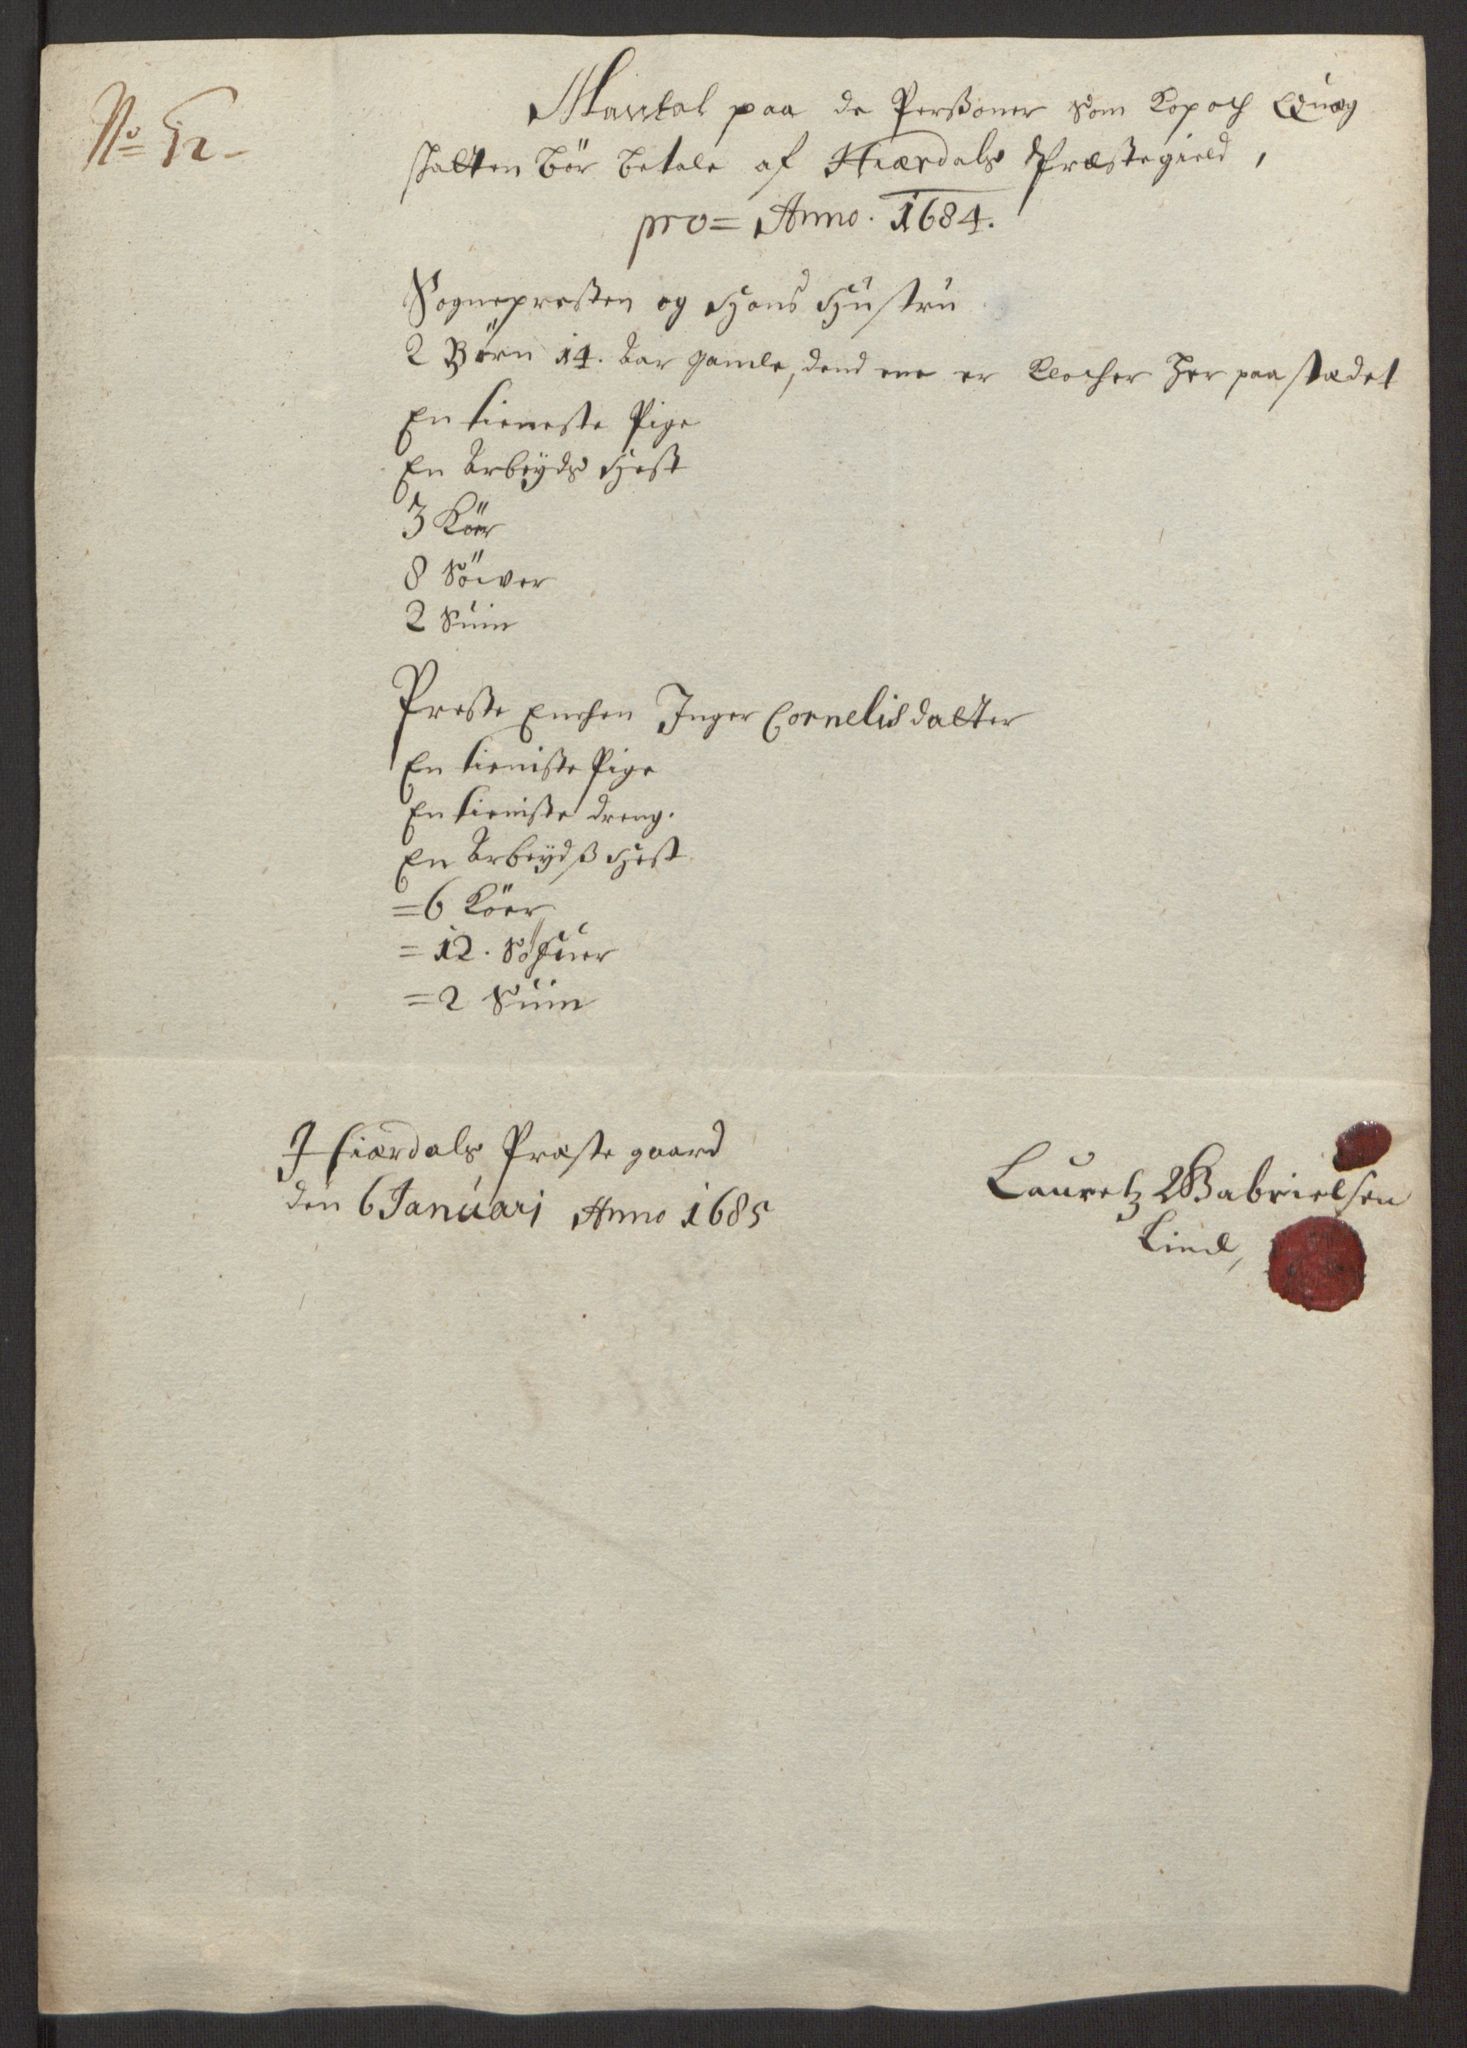 No 52-
Mantal paa de Perßoner som Kop och Quæg
skatten bör betale af Hiærdals Præstegield,
pro= Anno. 1684.
Sognepresten og Hans Hustru
2 Börn 14. Aar gamle, dend ene er Klocher her paa stædet
En tieneste Pige
En Arbeyds Hest
3 Köer
8 Söwer
2 Suin
Preste Enchen Inger Cornelisdatter
En tieniste Pige
En tieniste dreng.
En Arbeydß Hest
=6 Köer
=12. Söfuer
=2 Suin
J Hiærdals Præste gaard
den 6 Januari Anno 1685
Lauretz Gabrielsen
Lind,